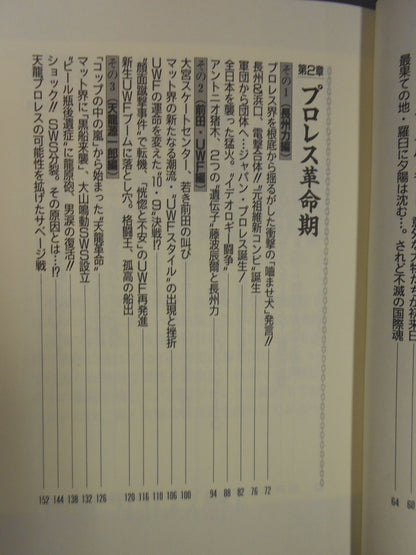 最果ての地・羅臼に夕陽は沈む…。されど不滅の国際魂 64
60
第2章 プロレス革命期
その1(長州力編)
プロレス界を根底から揺るがした衝撃の“噛ませ犬”発言!! 72
長州&浜口、電撃合体!!“元祖維新コンビ”誕生 76
軍団から団体へ…ジャパン・プロレス誕生! 82
全日本を襲った猛火。“イデオロギー闘争” 88
アントニオ猪木、2つの“遺伝子”藤波辰爾と長州力 94
その2(前田・UWF編)
大宮スケートセンター、若き前田の叫び 100
マット界の新たなる潮流・“UWFスタイル”の出現と挫折 106
UWFの運命を変えた“10・9”決戦!? 110
“顔面蹴撃事件”で転機、“恍惚と不安”のUWF再発進 116
新生UWFブームに落とし穴。格闘王、孤高の船出 120
その3(天龍源一郎編)
「コップの中の嵐」から始まった“天龍革命” 126
マット界に“黒船来襲”、大山鳴動SWS設立 132
“ビール瓶後遺症”に龍原砲、男涙の復活!! 138
ショック!! SWS分裂。その原因とは…!? 144
天龍プロレスの可能性を拡げたサベージ戦 152